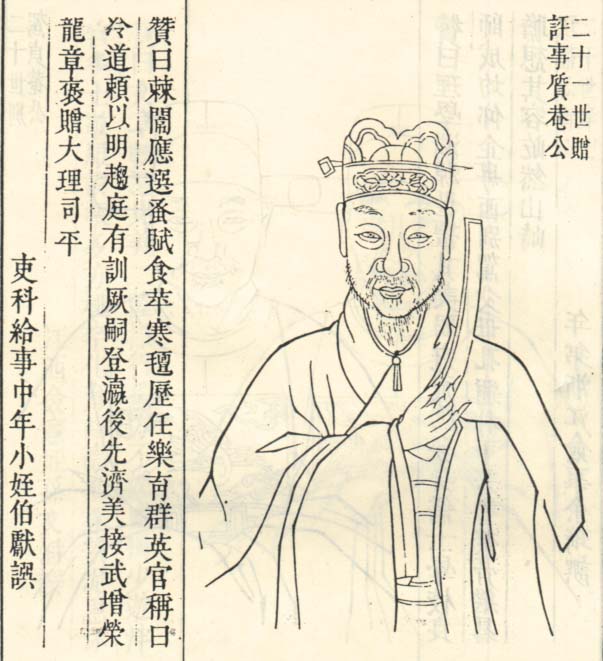 二十一世贈
評事質菴公
贊曰棘闈應選蚤賦食苹寒氊歷任樂育群英官稱曰
冷道賴以明趨庭有訓厥嗣登瀛後先濟美接武增榮
龍章褒贈大理司平
吏科給事中年小姪伯獻譔